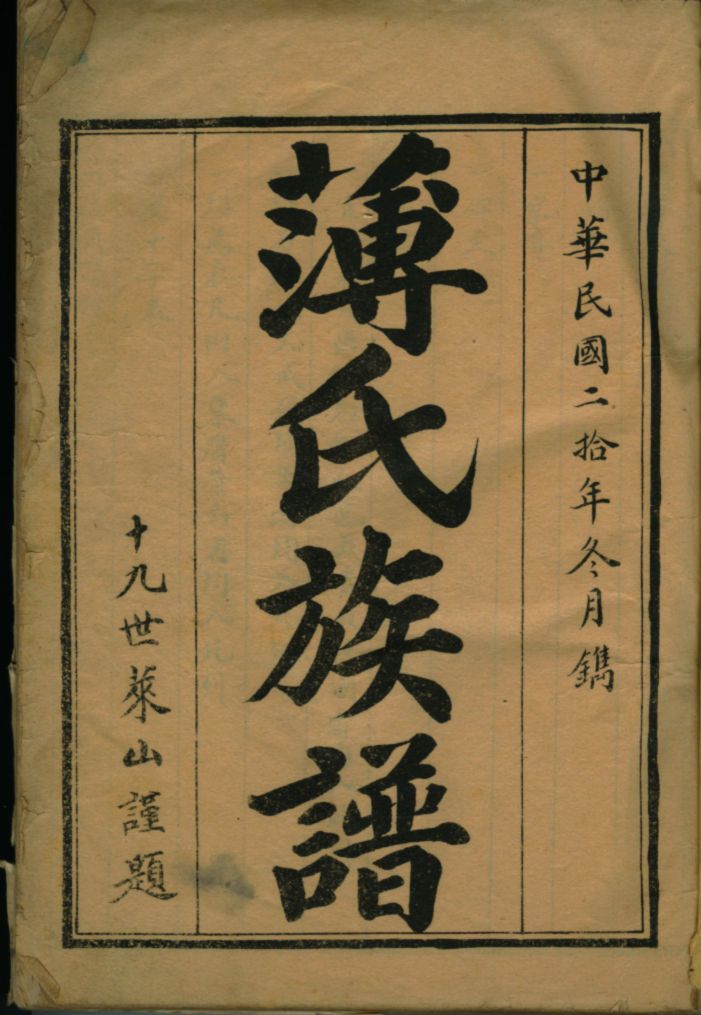 中華民國二拾年冬月鐫
薄氏族譜
十九世萊山謹題